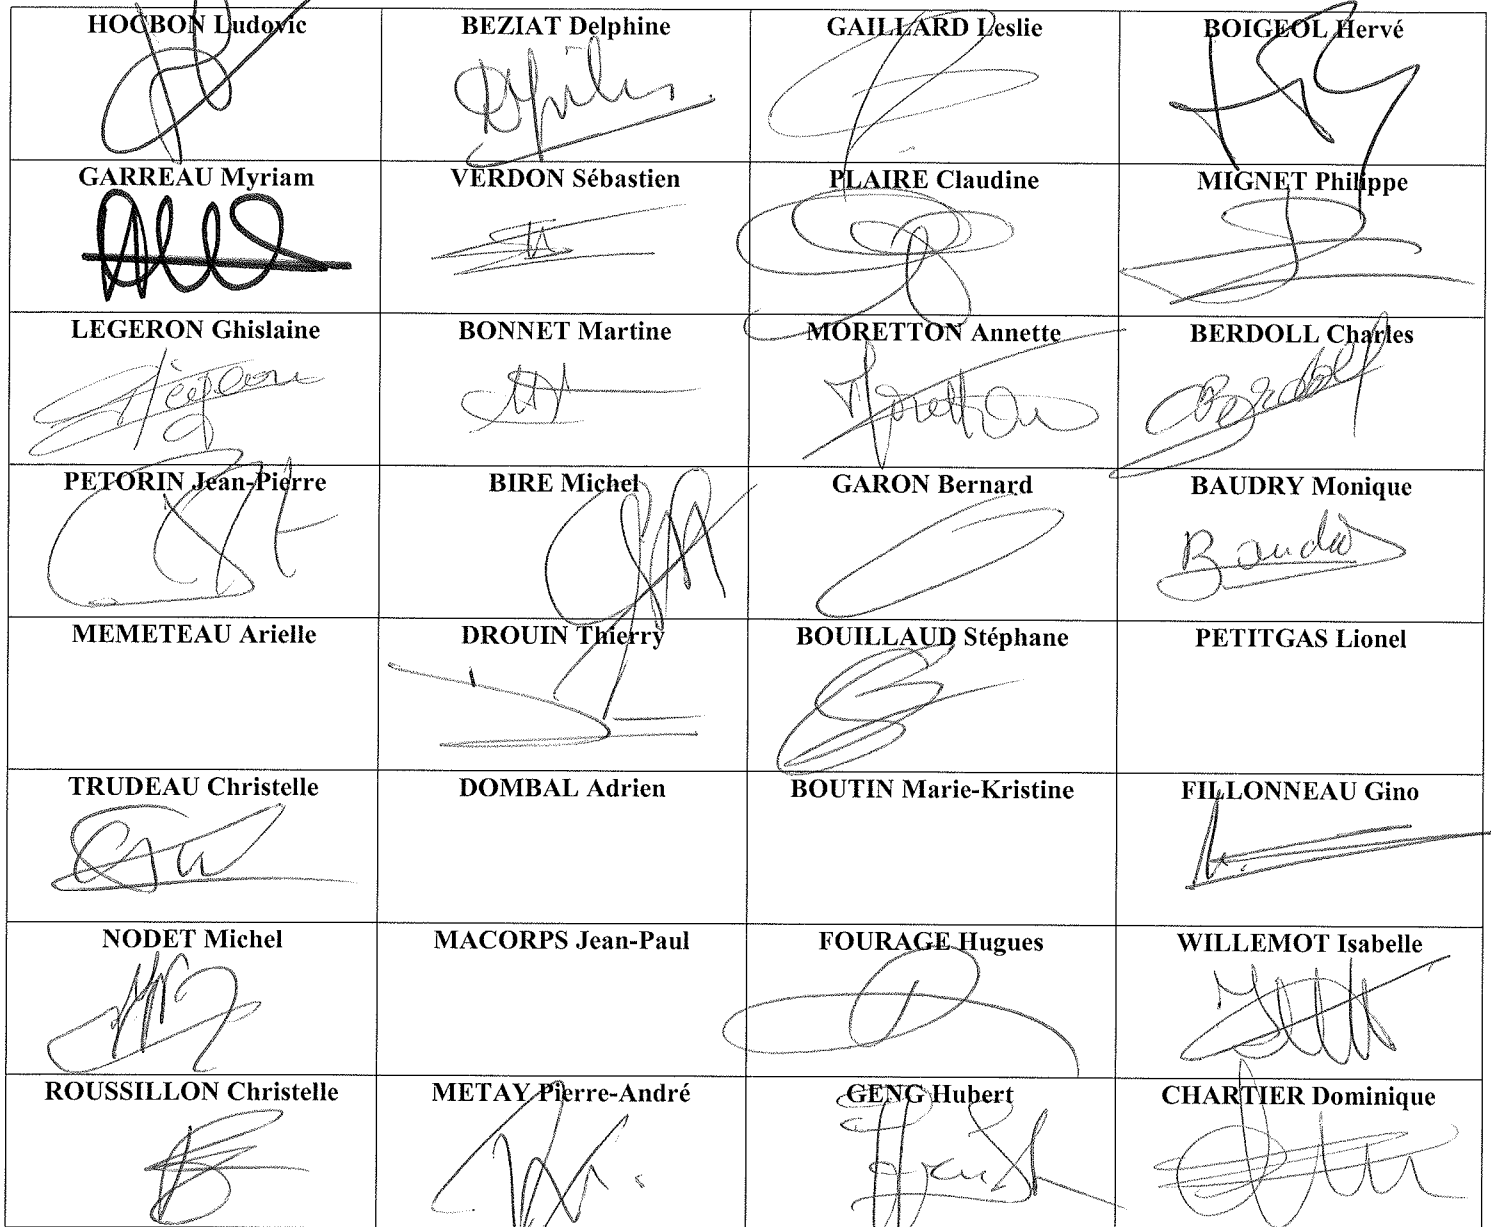 HOCBON Ludovic
BEZIAT Delphine
GAILLARD Leslie
BOIGEOL Hervé
GARREAU Myriam
VERDON Sébastien
PLAIRE Claudine
MIGNET Philippe
LEGERON Ghislaine
BONNET Martine
MORETTON Annette
BERDOLL Charles
PETORIN Jean-Pierre
BIRE Michel
GARON Bernard
BAUDRY Monique
MEMETEAU Arielle
DROUIN Thierry
BOUILLAUD Stéphane
PETITGAS Lionel
TRUDEAU Christelle
DOMBAL Adrien
BOUTIN Marie-Kristine
FILLONNEAU Gino
NODET Michel
MACORPS Jean-Paul
FOURAGE Hugues
WILLEMOT Isabelle
ROUSSILLON Christelle
METAY Pierre-André
GENG Hubert
CHARTIER Dominique